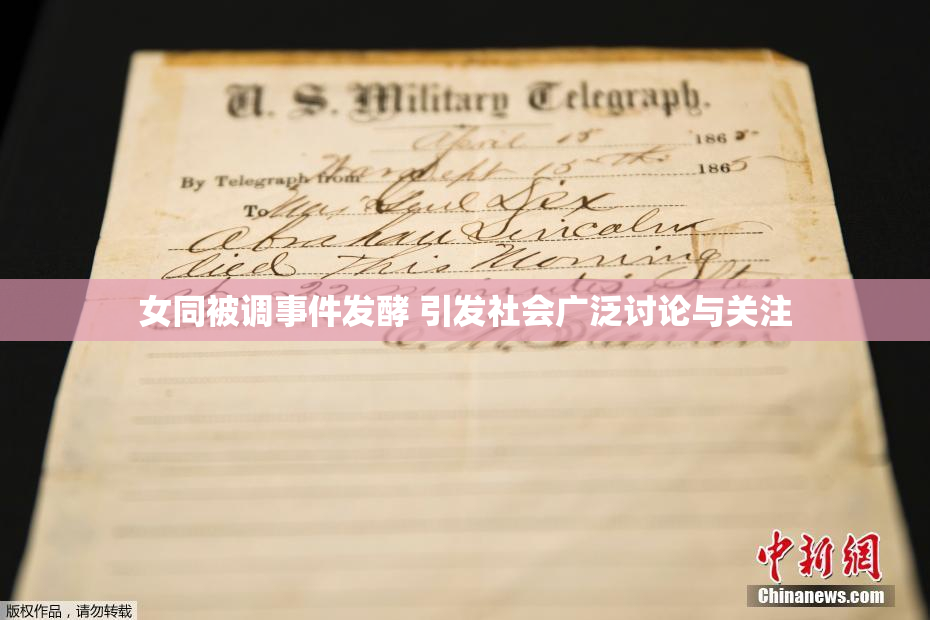 U. S. Military Telegraph.
April 15 1865
By Telegraph from War Dept 15th 1865
To Maj Genl Dix
Abraham Lincoln
died This Morning
22 minutes after
女同被调事件发酵 引发社会广泛讨论与关注
E. M. Stanton
中新网
Chinanews.com
版权作品，请勿转载